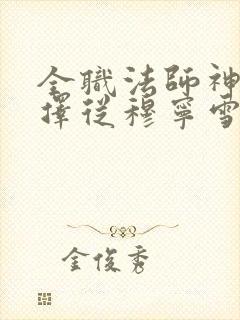 全職法師神
擇從穆寧雪
金俊秀